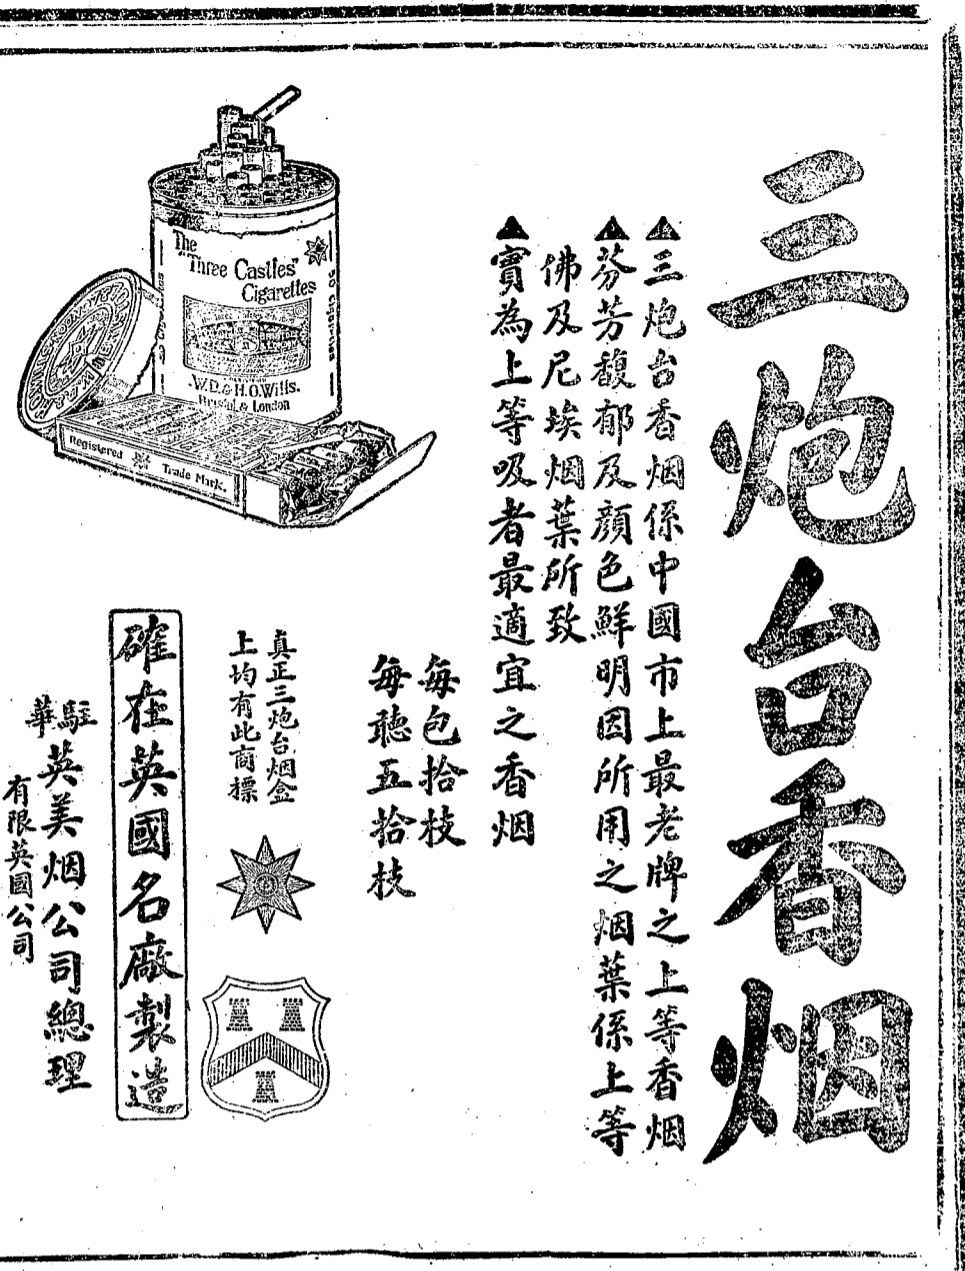 三炮台香烟
▲三炮台香烟係中國市上最老牌之上等香烟
▲芬芳馥郁及顏色鮮明因所用之烟葉係上等
佛及尼埃烟葉所致
▲實為上等吸者最適宜之香烟
每包拾枝
每聽五拾枝
The
"Three Castles"
Cigarettes
50 Cigarettes
W.D. & H.O. Wills.
Bristol & London
Registered Trade Mark.
真正三炮台烟盒
上均有此商標
確在英國名廠製造
駐華英美烟公司總理
有限英國公司